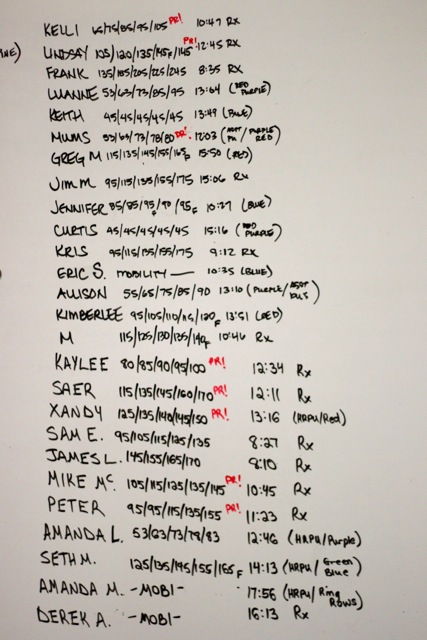 KELLI 65/75/85/95/105 PR! 10:47 Rx
INE) LINDSAY 105/120/135/145F/145 PR! 12:45 Rx
FRANK 135/185/205/225/245 8:35 Rx
LUANNE 53/63/73/85/95 13:04 (RED PURPLE)
KEITH 45/45/45/45/45 13:49 (BLUE)
MUMS 53/63/73/78/80 PR! 12:03 (PURPLE/ RED)
GREG M 115/135/145/155/165F 15:50 (RED)
JIM M 95/115/135/155/175 15:06 Rx
JENNIFER 85/95F/90/95F 10:27 (BLUE)
CURTIS 45/45/45/45/45 15:16 (RED PURPLE)
KRIS 95/115/135/155/175 9:12 Rx
ERIC S. MOBILITY — 10:35 (BLUE)
ALLISON 55/65/75/85/90 13:10 (PURPLE/ASST)
KIMBERLEE 95/105/110/115/120F 13:51 (RED)
M 115/125/130/135/140F 10:46 Rx
KAYLEE 80/85/90/95/100 PR! 12:34 Rx
SAER 115/135/145/160/170 PR! 12:11 Rx
XANDY 125/135/140/145/150 PR! 13:16 (HRPU/Red)
SAM E. 95/105/115/125/135 8:27 Rx
JAMES L. 145/155/165/170 9:10 Rx
MIKE Mc. 105/115/125/135/145 PR! 10:45 Rx
PETER 95/95/115/135/155 PR! 11:23 Rx
AMANDA L. 53/63/73/78/83 12:46 (HRPU/Purple)
SETH M. 125/135/145/155/165F 14:13 (HRPU/Green Blue)
AMANDA M. -MOBI- 17:56 (HRPU/Ring Rows)
DEREK A. -MOBI- 16:13 Rx